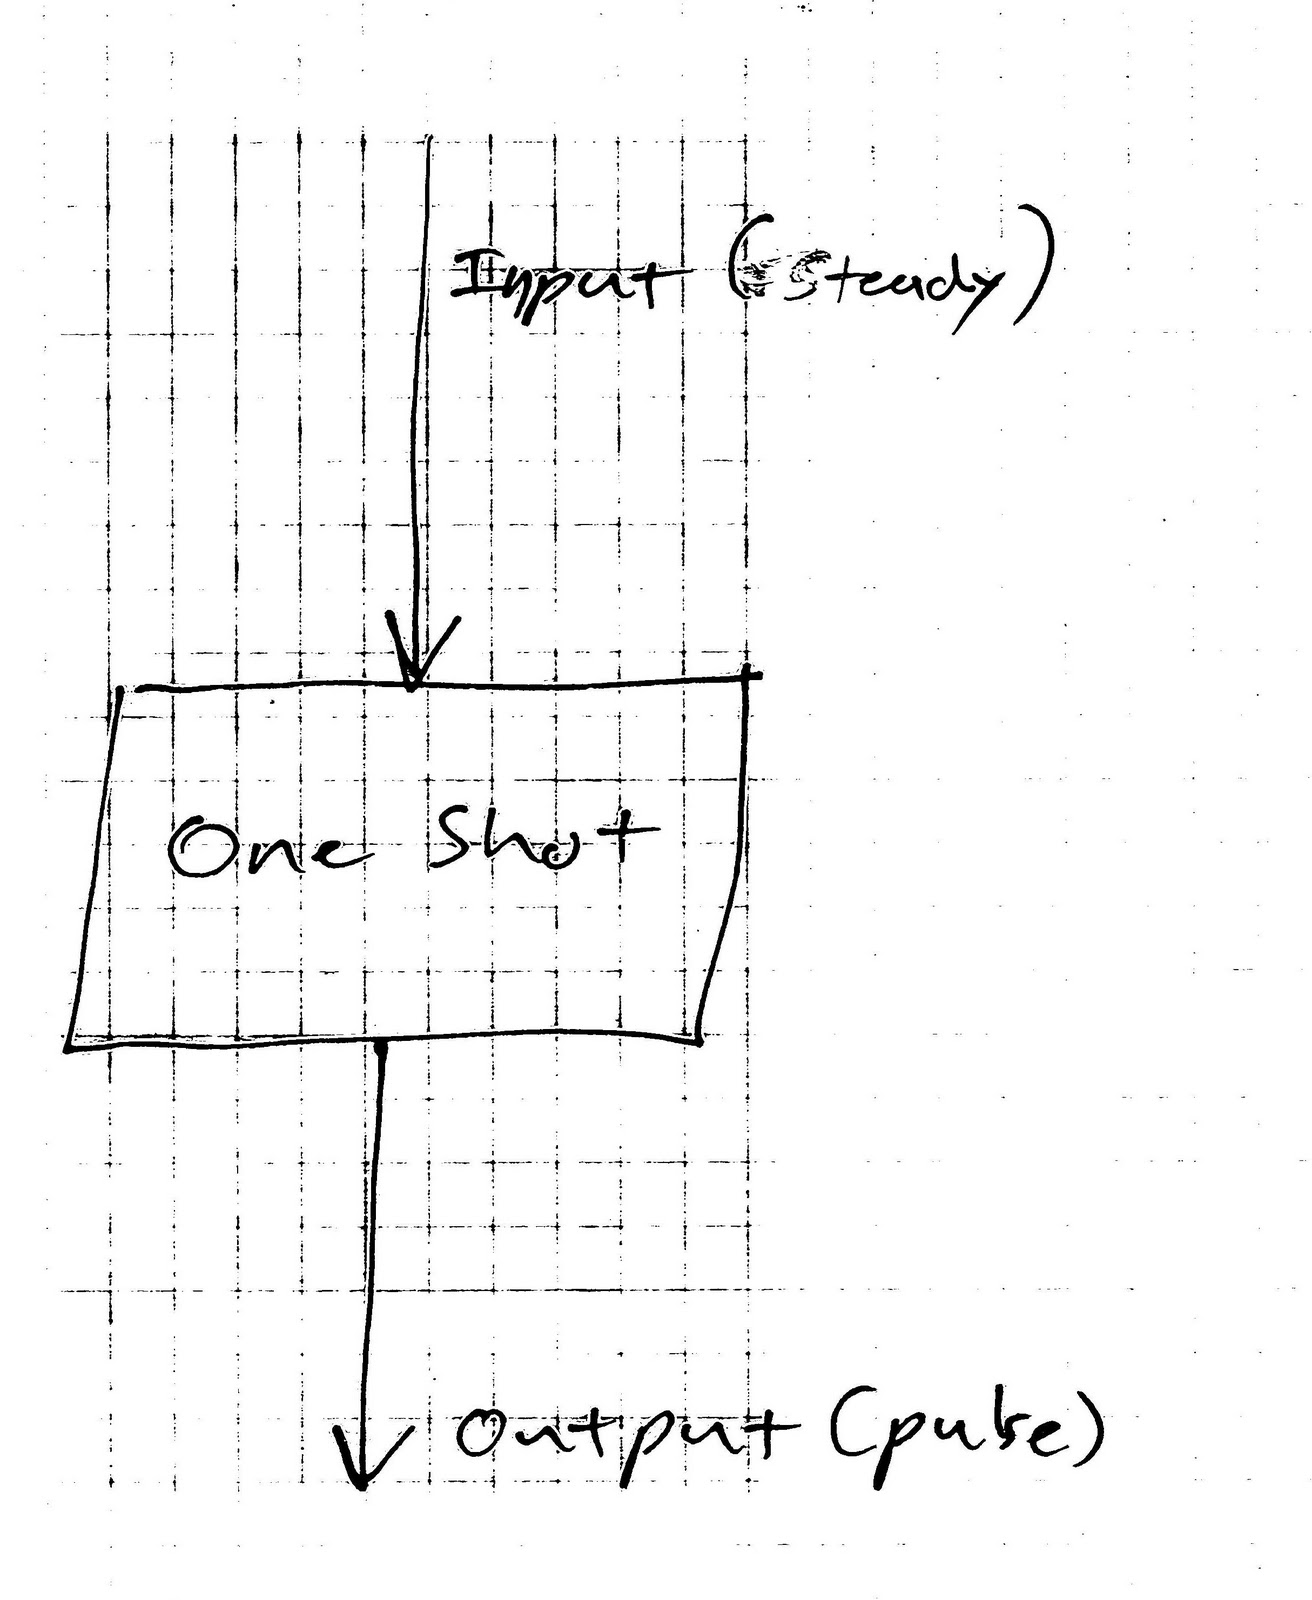 Input (Steady)
One Shot
Output (pulse)